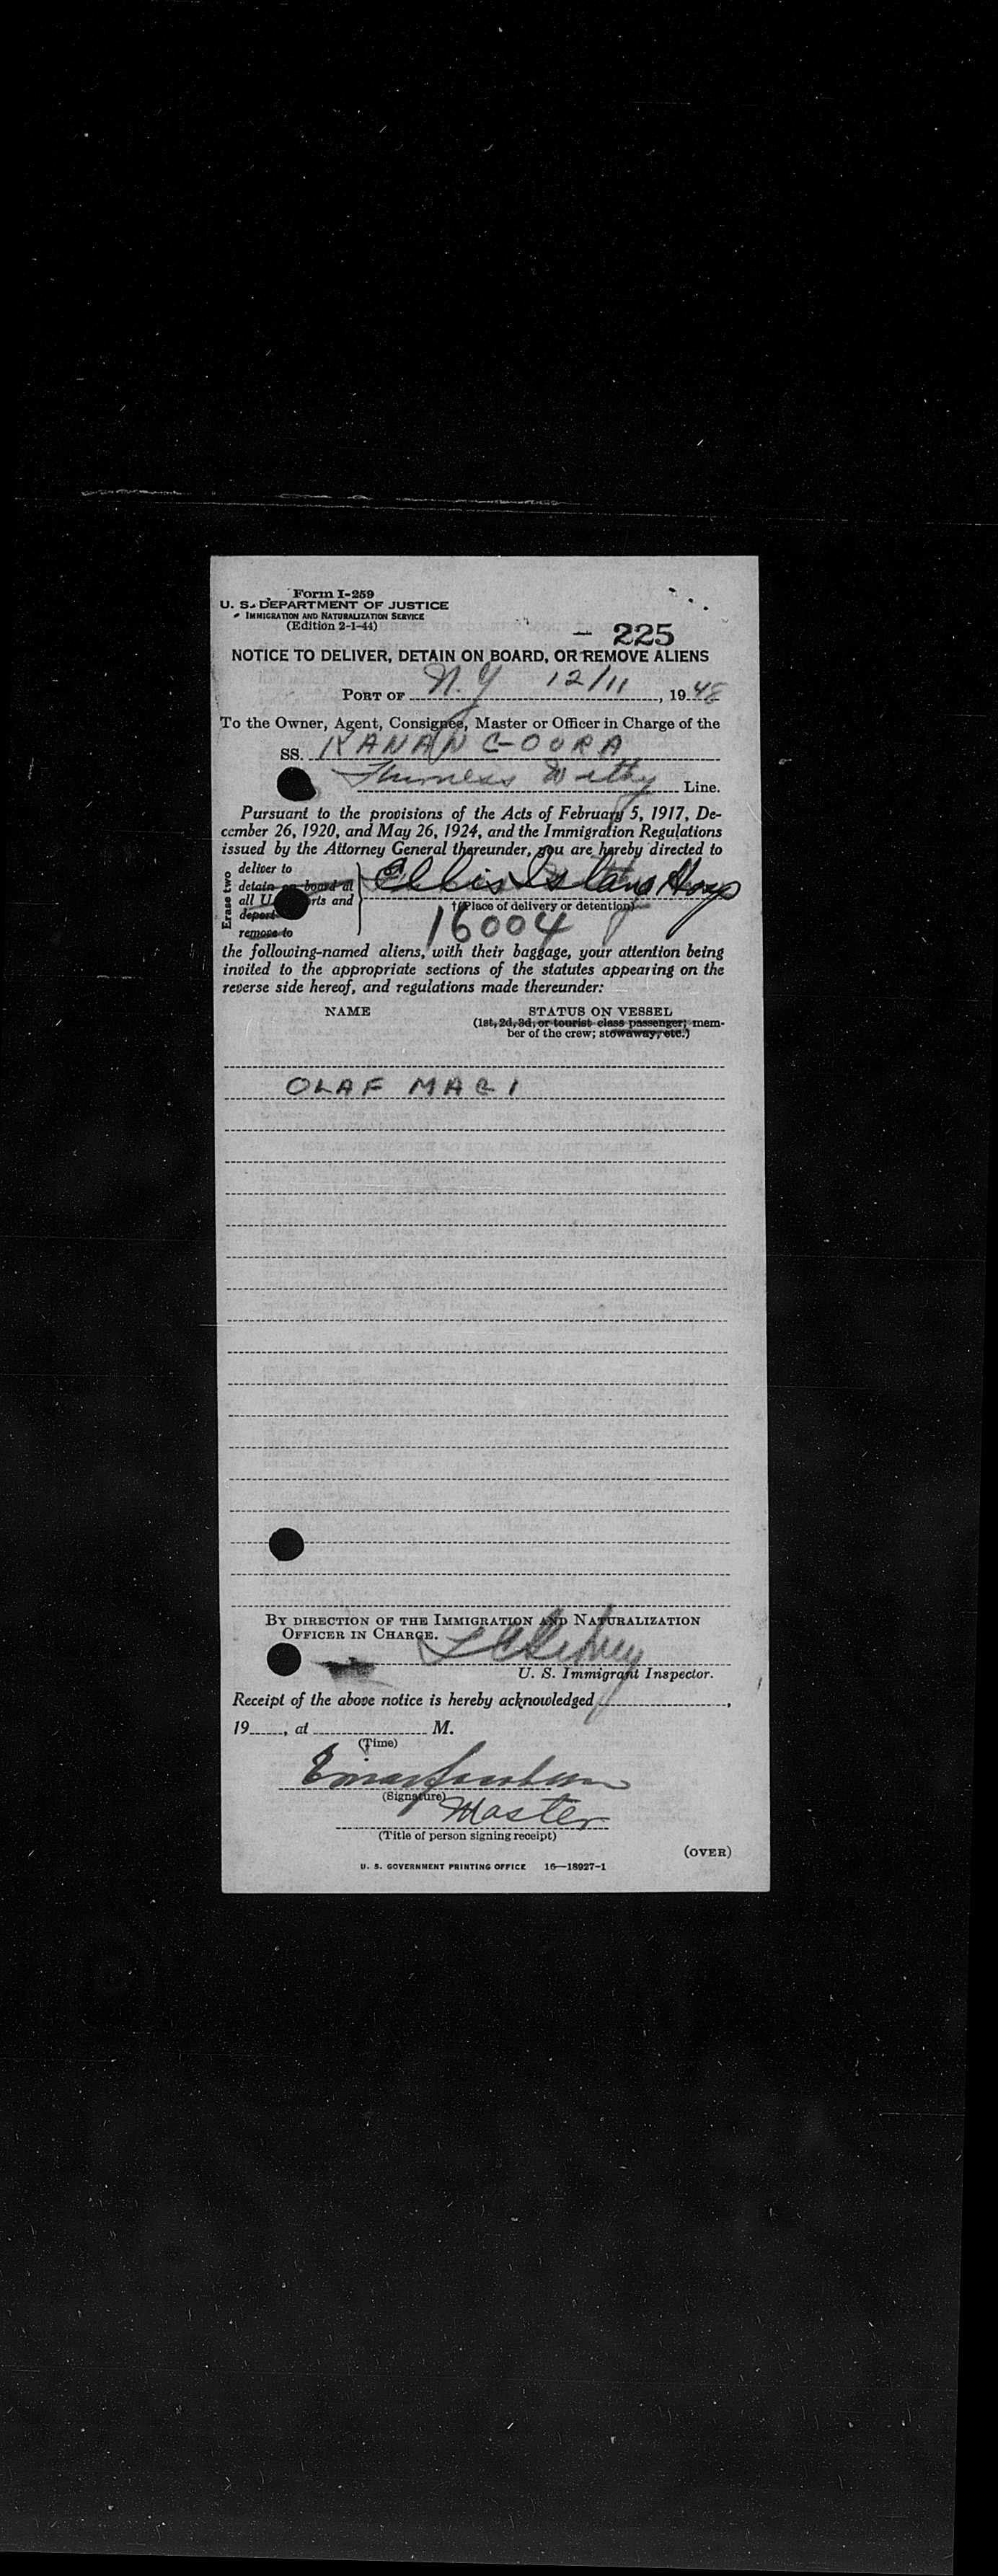 Form I-259
U. S. DEPARTMENT OF JUSTICE
IMMIGRATION AND NATURALIZATION SERVICE
(Edition 2-1-44)
225
NOTICE TO DELIVER, DETAIN ON BOARD, OR REMOVE ALIENS
PORT OF N.Y 12/11, 1948
To the Owner, Agent, Consignee, Master or Officer in Charge of the
SS. KANANGOORA
Furness Withy Line.
Pursuant to the provisions of the Acts of February 5, 1917, De-
cember 26, 1920, and May 26, 1924, and the Immigration Regulations
issued by the Attorney General thereunder, you are hereby directed to
Erase two
deliver to
detain on board at
all U. and
deport
remove to
Ellis Island Hosp
†(Place of delivery or detention)
16004
the following-named aliens, with their baggage, your attention being
invited to the appropriate sections of the statutes appearing on the
reverse side hereof, and regulations made thereunder:
NAME
STATUS ON VESSEL
(1st, 2d, 3d, or tourist class passenger; mem-
ber of the crew; stowaway, etc.)
OLAF
BY DIRECTION OF THE IMMIGRATION AND NATURALIZATION
OFFICER IN CHARGE.
U. S. Immigrant Inspector.
Receipt of the above notice is hereby acknowledged,
19, at M.
(Time)
(Signature)
Master
(Title of person signing receipt)
(OVER)
U. S. GOVERNMENT PRINTING OFFICE 16—18927-1